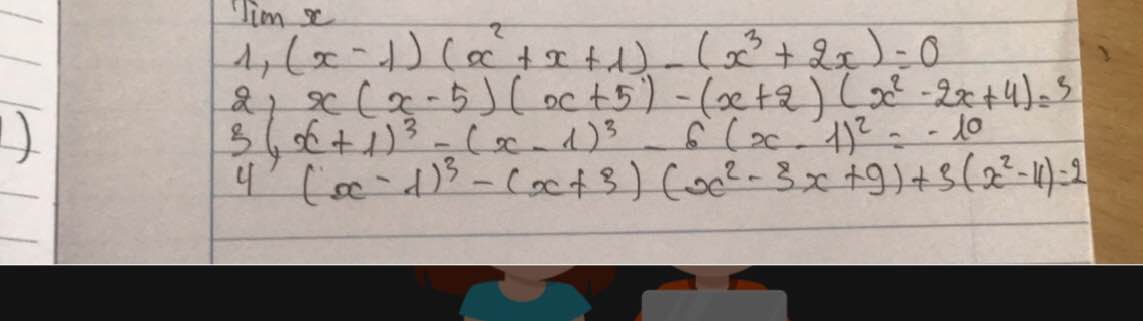 Tìm x
1, (x - 1) (x² + x + 1) - (x³ + 2x) = 0
2, x (x - 5) (x + 5) - (x + 2) (x² - 2x + 4) = 3
3 (x + 1)³ - (x - 1)³ - 6 (x - 1)² = - 10
4 (x - 1)³ - (x + 3) (x² - 3x + 9) + 3 (x² - 4) = 2